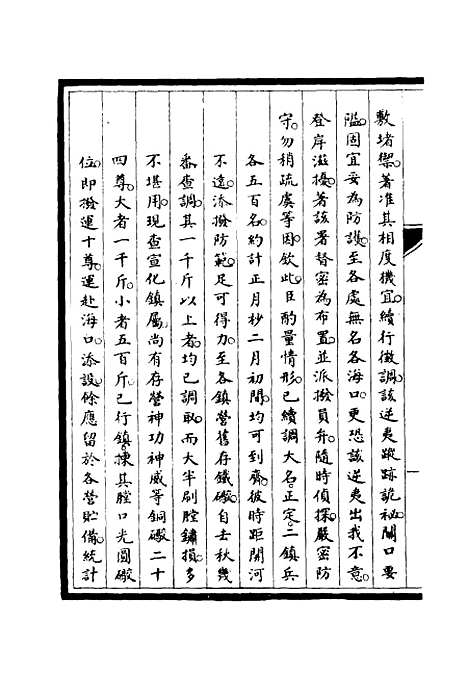 敷堵禦。著准其相度機宜。續行徵調。該逆夷蹤跡詭秘。關口要
隘。固宜妥為防護。至各處無名各海口。更恐該逆夷出我不意。
登岸滋擾。著該署督密為布置。並派撥員弁。隨時偵探。嚴密防
守。勿稍疏虞等因。欽此。臣酌量情形。已續調大名。正定。二鎮兵
各五百名。約計正月杪二月初間。均可到齊。彼時距開河
不遠。添撥防範。足可得力。至各鎮營舊存鐵礮。自去秋幾
番查調。其一千斤以上者。均已調取。而大半刷膛鏽損。多
不堪用。現查宣化鎮屬。尚有存營神功神威等銅礮二十
四尊。大者一千斤。小者五百斤。已行鎮。揀其膛口光圓礮
位。即撥運十尊。運赴海口。添設。餘應留於各營貯備。統計